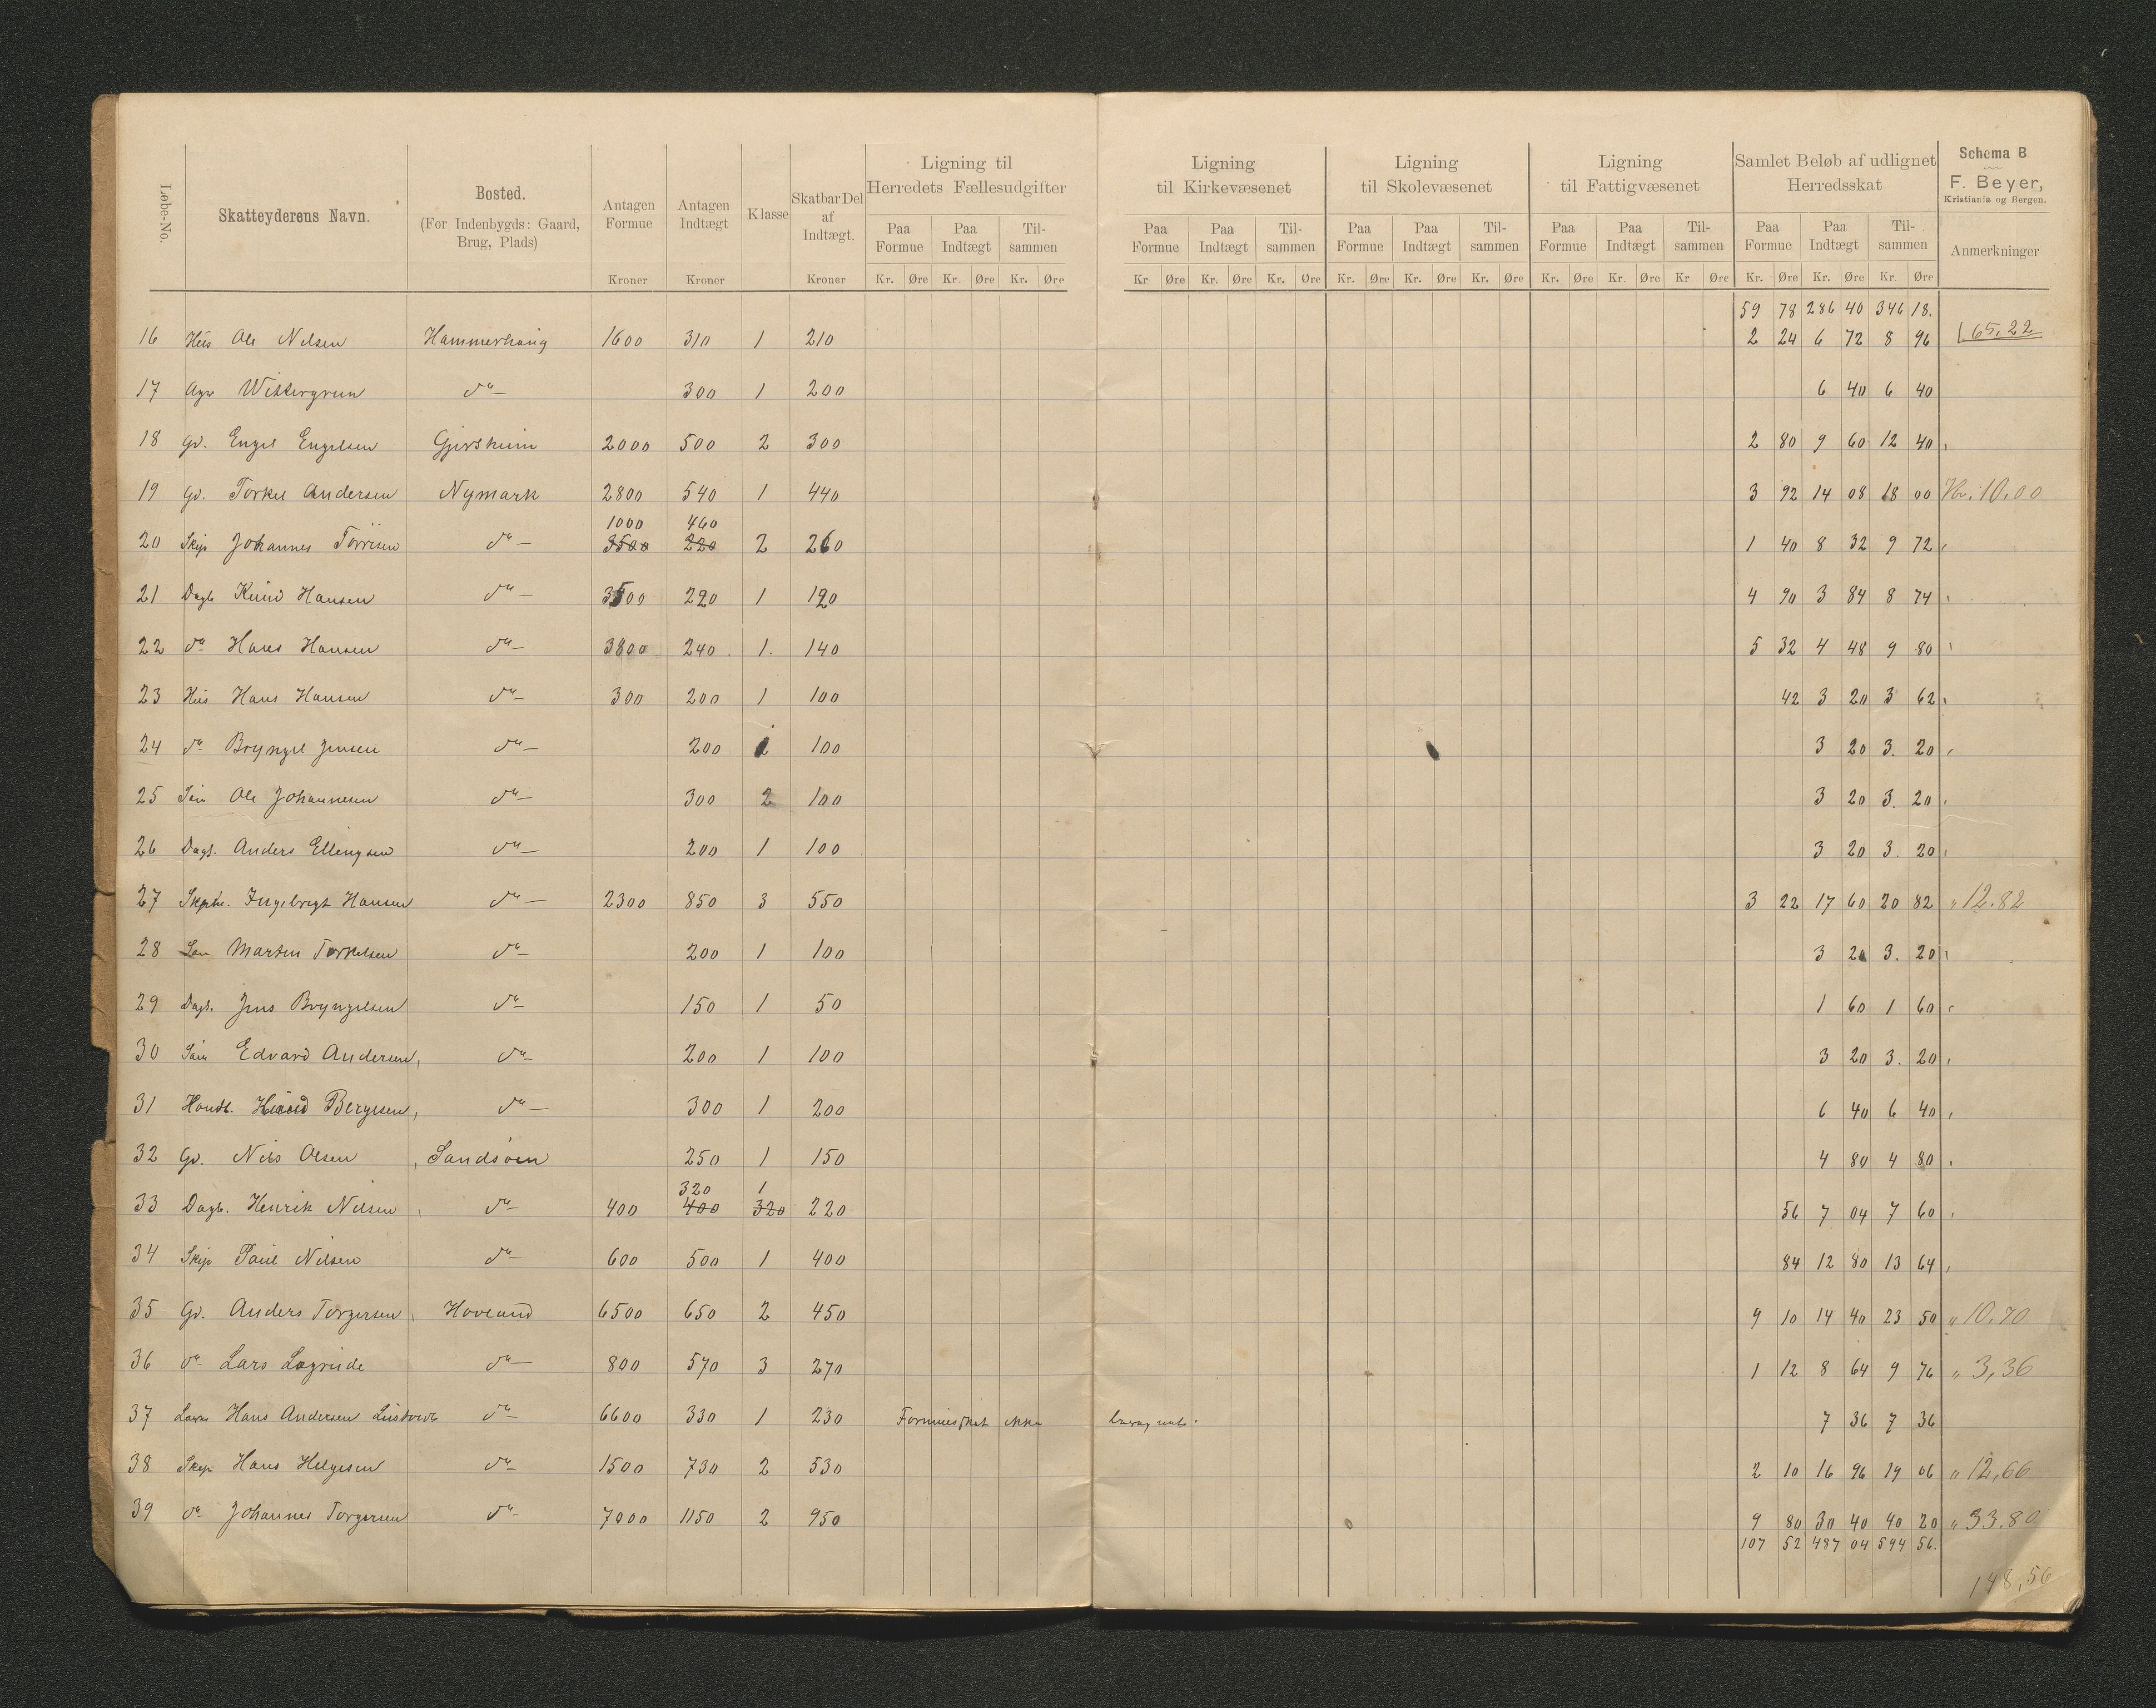 Løbe-No. Skatteyderens Navn. Bosted. (For Indenbygds: Gaard, Brug, Plads) Antagen Formue Kroner Antagen Indtægt Kroner Klasse Skatbar Del af Indtægt. Kroner Ligning til Herredets Fællesudgifter Paa Formue Kr. Øre Paa Indtægt Kr. Øre Tilsammen Kr. Øre
Ligning til Kirkevæsenet Paa Formue Kr Øre Paa Indtægt Kr. Øre Tilsammen Kr. Øre Ligning til Skolevæsenet Paa Formue Kr. Øre Paa Indtægt Kr. Øre Tilsammen Kr. Øre Ligning til Fattigvæsenet Paa Formue Kr. Øre Paa Indtægt Kr Øre Tilsammen Kr Øre Samlet Beløb af udlignet Herredsskat Paa Formue Kr. Øre Paa Indtægt Kr. Øre Tilsammen Kr Øre Schema B. F. Beyer, Kristiania og Bergen. Anmerkninger
59 78 286 40 346 18.
16 Hus Ole Nilsen Hammerhaug 1600 310 1 210 2 24 6 72 8 96 165,22
17 da 300 1 200 6 40 6 40
18 Gd. Engel Engelsen Gjerskein 2000 500 2 300 2 80 9 60 12 40
19 Gd. Torkel Andersen Nymark 2800 540 1 440 3 92 14 08 18 00 Kr. 10.00
1000 460
20 Skip Johannes Torrisen da 3500 220 2 260 1 40 8 32 9 72
21 Dagl. Knud Hansen da 3500 220 1 120 4 90 3 84 8 74
22 da Hans Hansen da 3800 240 1. 140 5 32 4 48 9 80
23 Hus Hans Hansen da 300 200 1 100 42 3 20 3 62
24 da Bryngel Jensen da 200 1 100 3 20 3. 20
25 Ole Johannesen da 300 2 100 3 20 3. 20
26 Dagl. Anders Ellingsen da 200 1 100 3 20 3. 20
27 Ingebrigt Hansen da 2300 850 3 550 3 22 17 60 20 82 " 12.82
28 Martin Torkelsen da 200 1 100 3 20 3. 20
29 Dagl. Jens Bryngelsen da 150 1 50 1 60 1 60
30 Edvard Andersen, da 200 1 100 3 20 3. 20
31 Handl. Bergesen, da 300 1 200 6 40 6 40
32 Gd. Nils Olsen Sandsøen 250 1 150 4 80 4 80
320 1
33 Dagl. Henrik Nilsen da 400 400 320 220 56 7 04 7 60
34 Skip Paul Nilsen da 600 500 1 400 84 12 80 13 64
35 Gd. Anders Torgersen Hovland 6500 650 2 450 9 10 14 40 23 50 " 10,70
36 da Lars Løgreide da 800 570 3 270 1 12 8 64 9 76 " 3,36
37 Hans Andersen da 6600 330 1 230 Formuesskat ikke 7 36 7 36
38 Skip Hans Helgesen da 1500 730 2 530 2 10 16 96 19 06 " 12,66
39 da Johannes Torgersen da 7000 1150 2 950 9 80 30 40 40 20 " 33.80
107 52 487 04 594 56.
148,56